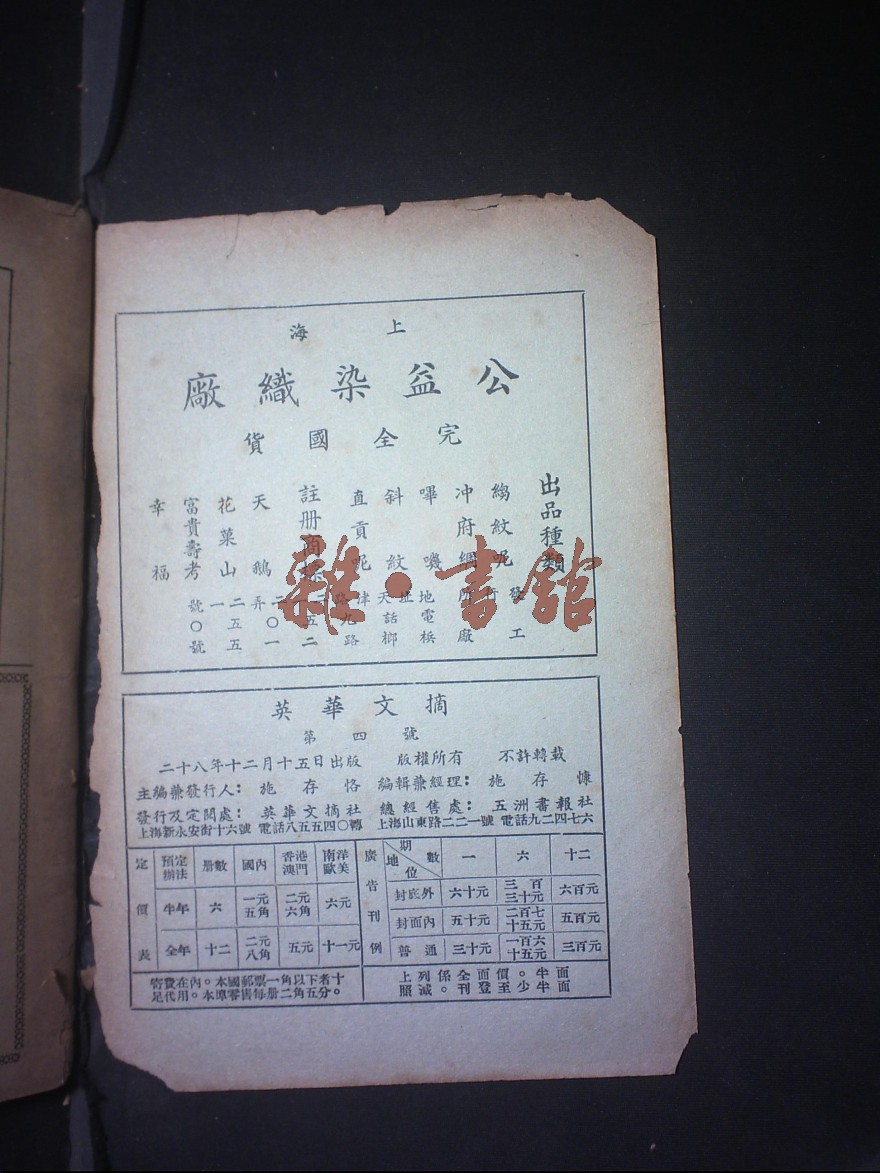 上海
公益染織廠
完全國貨
出品種類
縐紋呢
冲府綢
嗶嘰
斜紋
直貢呢
註册商標
天鵝
花菓山
富貴壽考
幸福
雜·書館
英華文摘
第四號
二十八年十二月十五日出版 版權所有 不許轉載
主編兼發行人：施存恪 編輯兼經理：施存慷
發行及定閱處：英華文摘社 總經售處：五洲書報社
上海新永安街十六號 電話八五五四〇轉 上海山東路二二一號 電話九二四七六
定價表
預定辦法 册數 國內 香港澳門 南洋歐美
半年 六 一元五角 二元六角 六元
全年 十二 二元八角 五元 十一元
寄費在內。本國郵票一角以下者十
足代用。本埠零售每册二角五分。
廣告刊例
期數 地位 一 六 十二
封底外 六十元 三百三十元 六百元
封面內 五十元 二百七十五元 五百元
普通 三十元 一百六十五元 三百元
上列係全面價。半面
照減。刊登至少半面